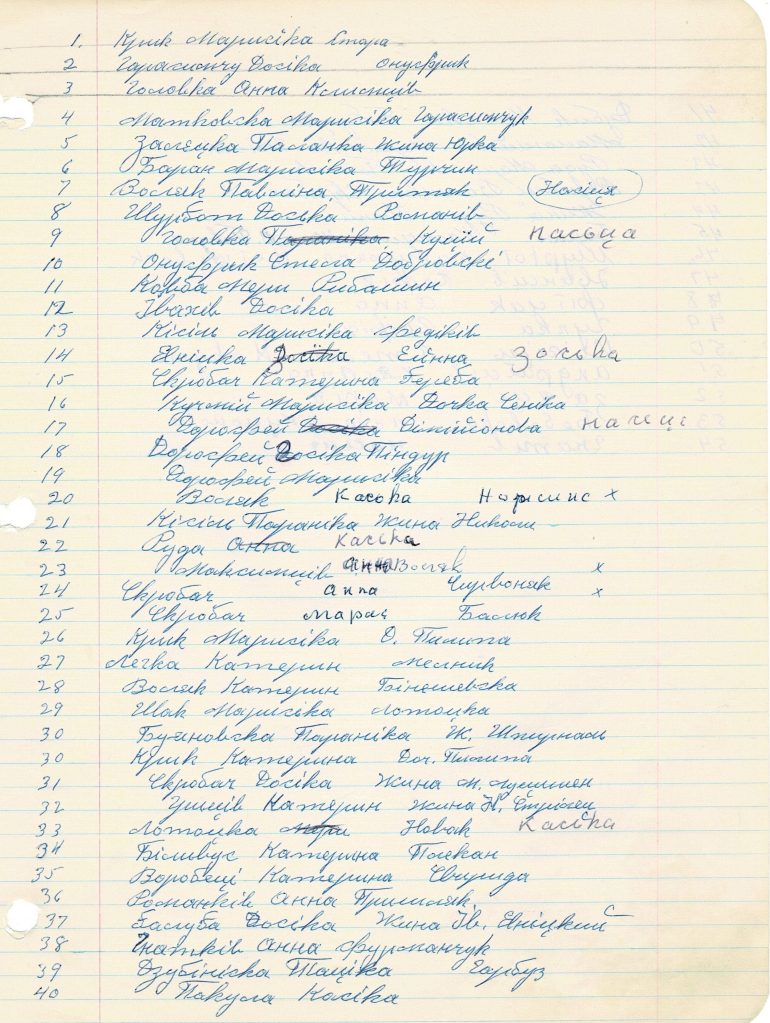 1. Крик Марисіка Стара
2 Гарасимчу Досіка Онуфрик
3 Головка Анна Климців
4 Матковска Марисіка Гарасимчук
5 Залецка Паланка Жина Юрка
6 Баран Марисіка Турчин
7 Восяк Павліна Притяк Насіця
8 Шурбот Доська Романів
9 Головка Параніка Кулій Насьца
10 Онуфрик Стела Добровскі
11 Ковба Мери Рибашин
12 Івахів Досіка
13 Кісіль Марисіка Федіків
14 Яніцка Досіка Ейнна Зоська
15 Скробач Катерина Береба
16 Кучмій Марисіка Дочка Сеніка
17 Дорофей Досіка Дімійонова
18 Дорофей Досіка Піндур
19 Дорофей Марисіка
20 Восяк Каська х
21 Кісіль Параніка Жина Николи
22 Руда Анна Каська
23 Максимців Анна Восяк х
24 Скробач Анна Чирвоняк х
25 Скробач Марац Балюк
26 Крик Марисіка О. Пилипа
27 Легка Катерин Мелник
28 Восяк Катерин
29 Шак Марисіка Лотоцка
30 Буяновска Параніка Ж.
30 Крик Катерина Доч. Пилипа
31 Скробач Досіка Жина М.
32 Катерин Жина Н. Стрілец
33 Лотоцка Мери Новак Каська
34 Біливус Катерина Плекан
35 Воробеці Катерина Свирида
36 Романків Анна
37 Балуба Досіка Жина Ів. Яніцкий
38 Гнатків Анна Фурманчук
39 Дзубініска Таціка Гарбуз
40 Пакула Касіка